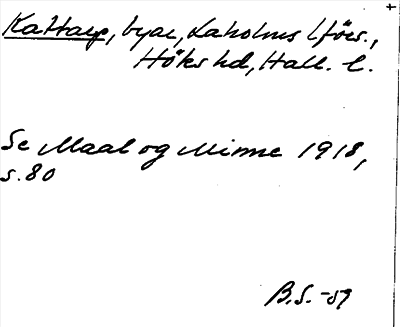 Kattarp, byar, Laholms lförs.,
Höks hd, Hall. l.
Se Maal og Minne 1918,
s. 80
B.S. -59